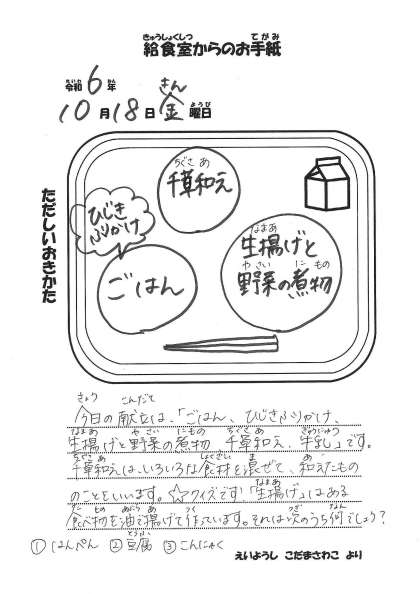 給食室からのお手紙
令和6年
10月18日金曜日
ただしいおきかた
千草和え
ひじき
ふりかけ
ごはん
生揚げと
野菜の煮物
今日の献立は、「ごはん、ひじきふりかけ、
生揚げと野菜の煮物 千草和え、牛乳」です。
千草和えは、いろいろな食材を混ぜて、和えたもの
のことをいいます。☆クイズです!「生揚げ」はある
食べ物を油で揚げて作っています。それは次のうち何でしょう?
①はんぺん ②豆腐 ③こんにゃく
えいようし こだまさわこ より